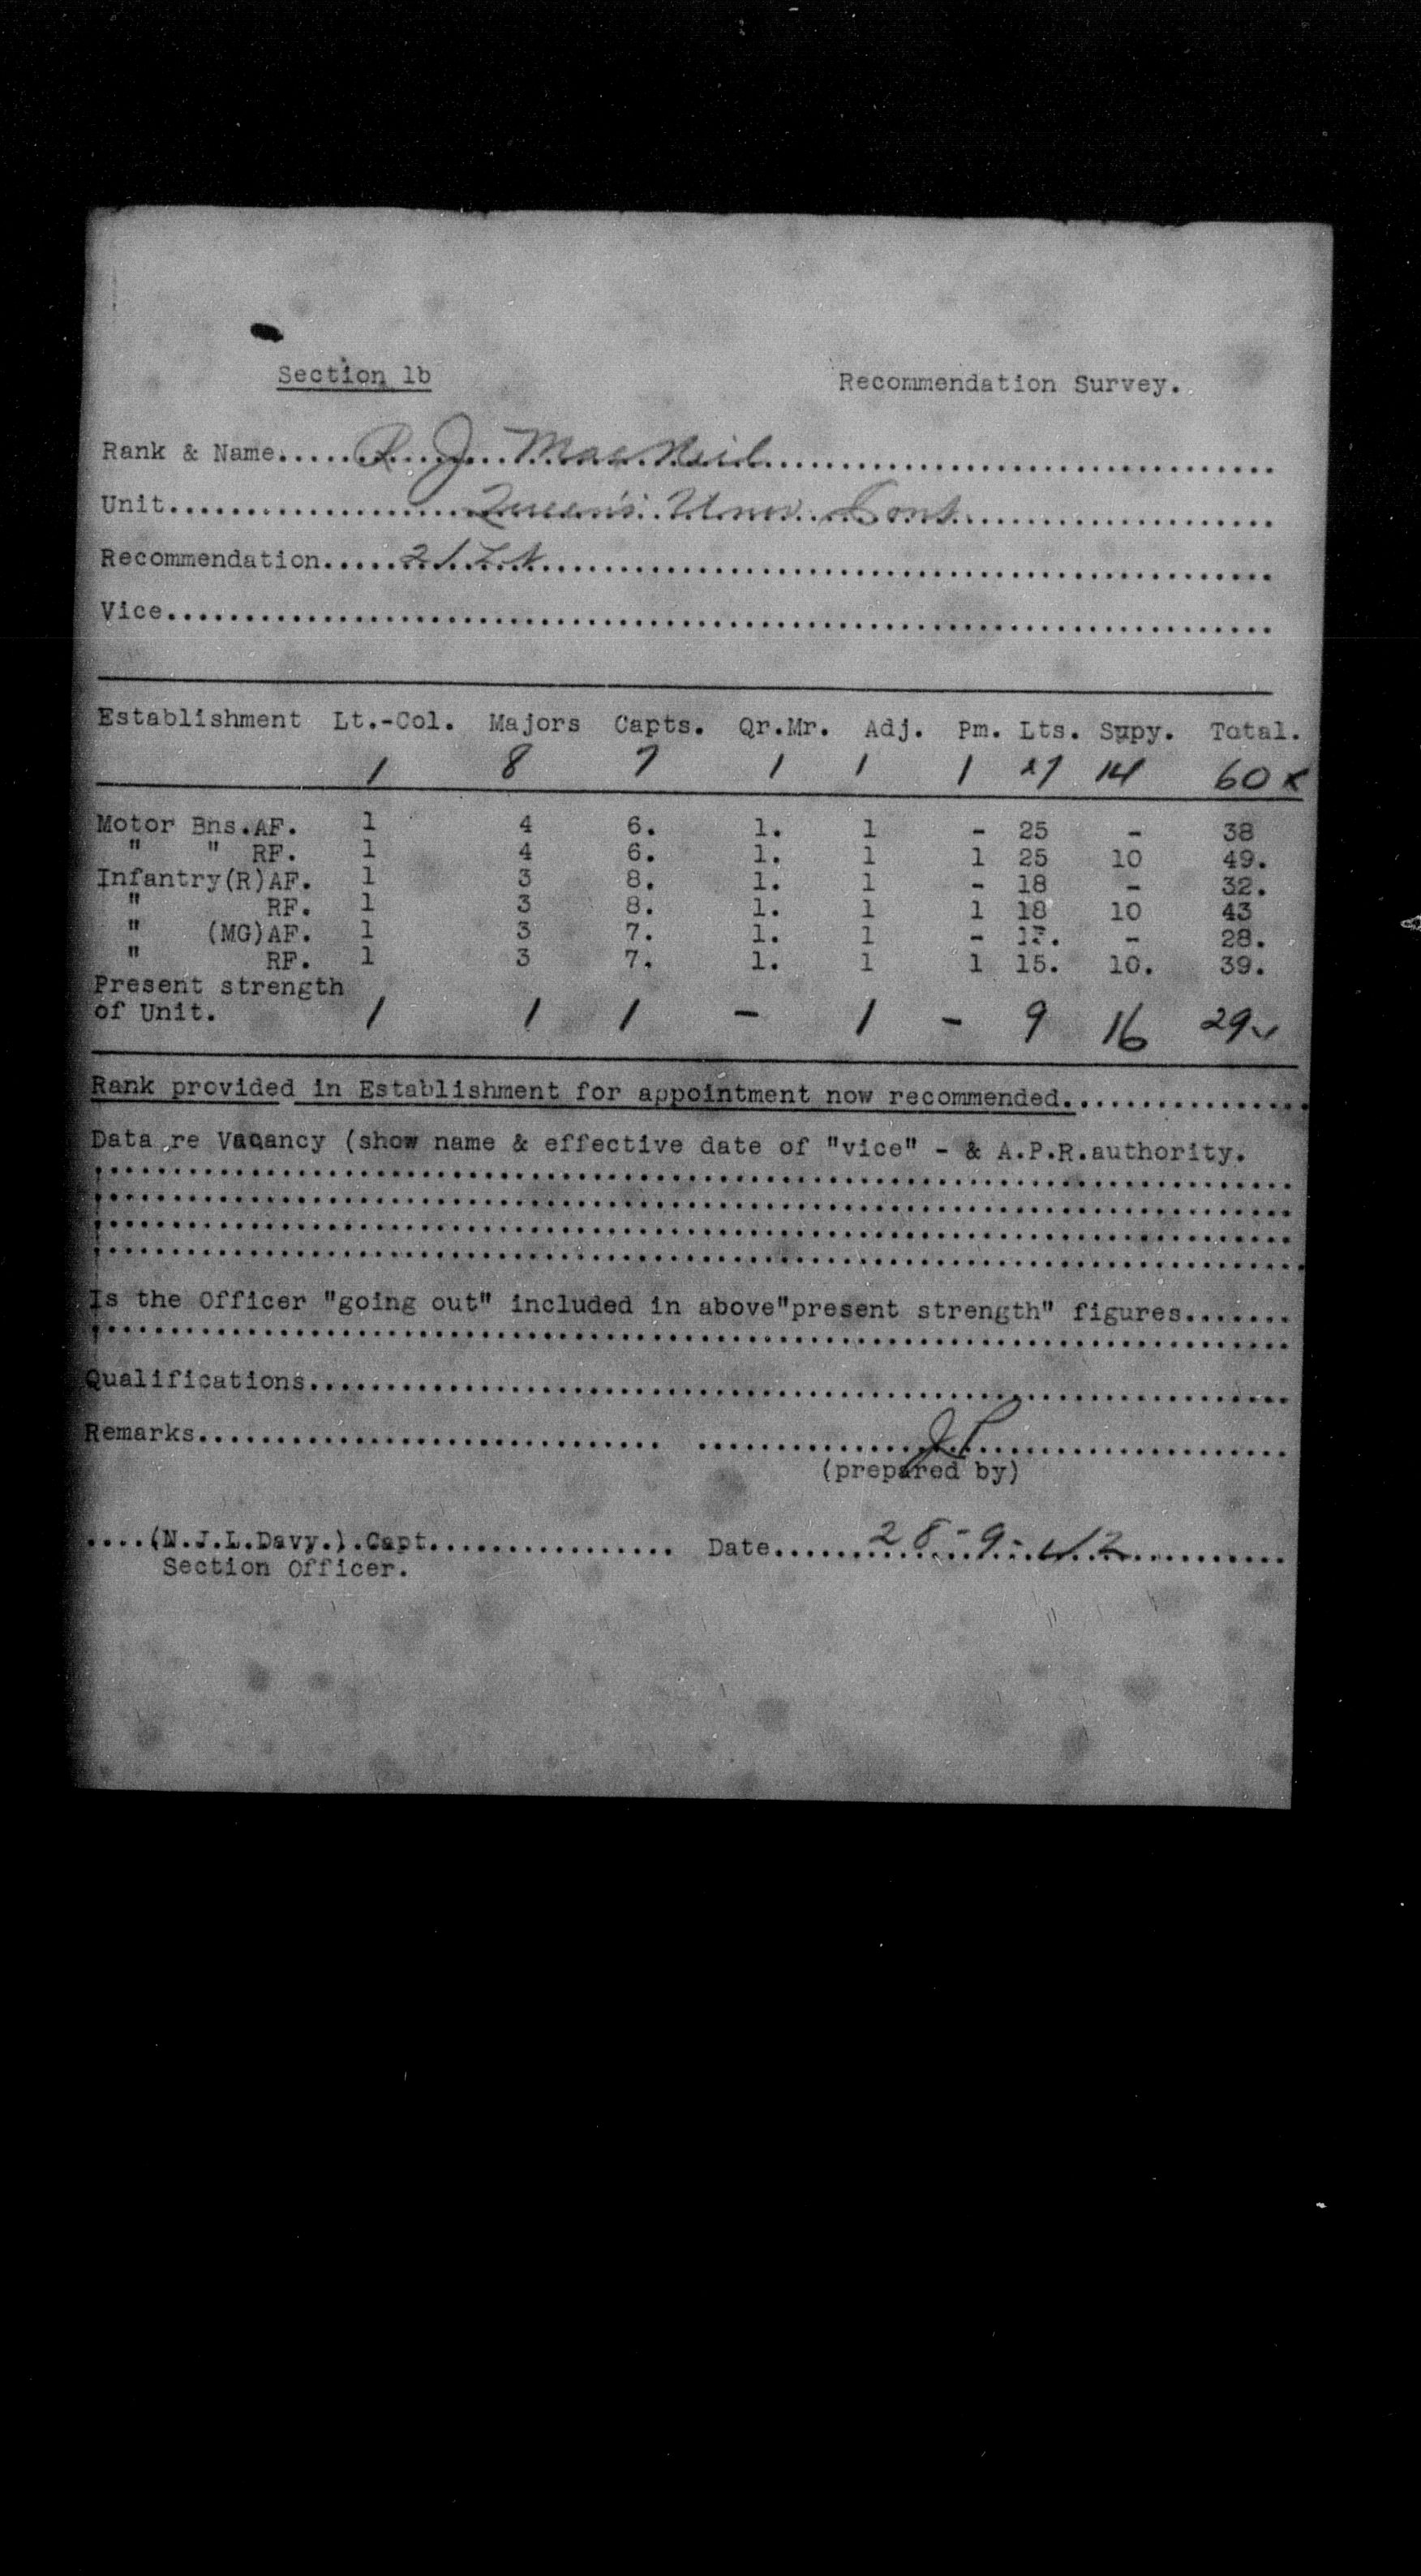 Section 1b Recommendation Survey.
Rank & Name.....R. J. MacNeil..........
Unit..........Queen's Univ. Cont..........
Recommendation.....2/Lt..........
Vice..........
Establishment Lt.-Col. Majors Capts. Qr.Mr. Adj. Pm. Lts. Supy. Total.
1 8 7 1 1 1 27 14 60 x
Motor Bns.AF. 1 4 6. 1. 1 - 25 - 38
" " RF. 1 4 6. 1. 1 1 25 10 49.
Infantry(R)AF. 1 3 8. 1. 1 - 18 - 32.
" RF. 1 3 8. 1. 1 1 18 10 43
" (MG)AF. 1 3 7. 1. 1 - - 28.
" RF. 1 3 7. 1. 1 1 15. 10. 39.
Present strength
of Unit. 1 1 1 - 1 - 9 16 29
Rank provided in Establishment for appointment now recommended...............
Data re Vacancy (show name & effective date of "vice" - & A.P.R.authority.
Is the Officer "going out" included in above"present strength" figures.......
Qualifications..........
Remarks..........
(prepared by)
....(N.J.L.Davy.).Capt.......... Date.....28-9-42..........
Section Officer.